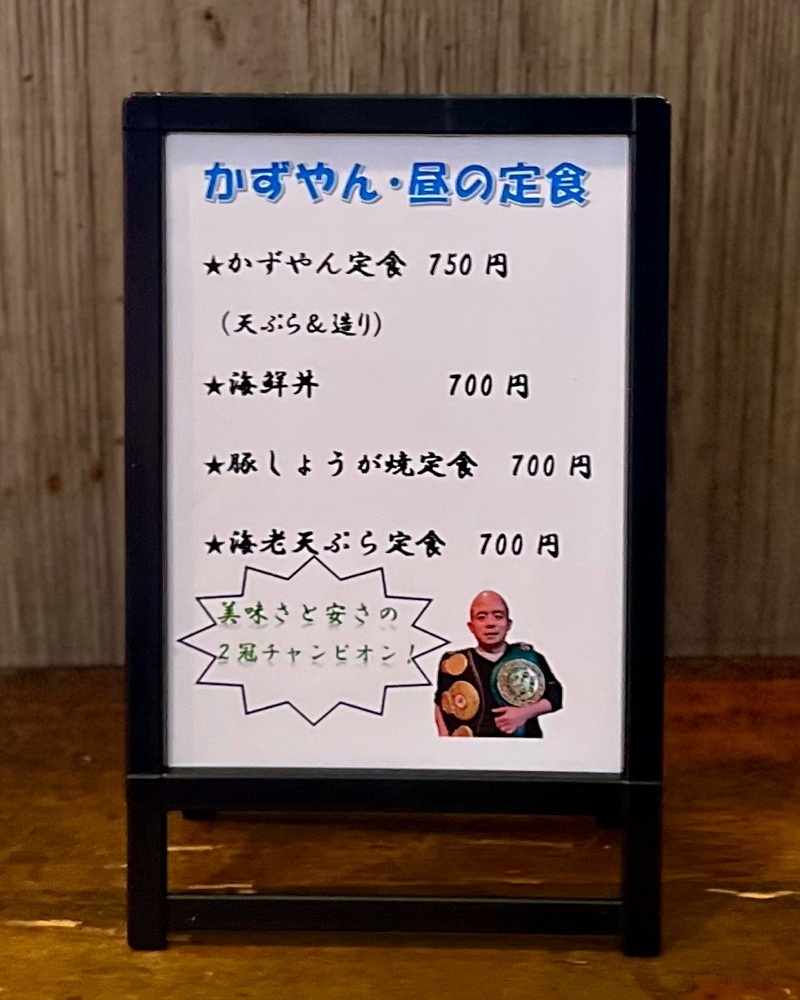 かずやん・昼の定食
★かずやん定食 750 円
（天ぷら＆造り）
★海鮮丼 700 円
★豚しょうが焼定食 700 円
★海老天ぷら定食 700 円
美味さと安さの
２冠チャンピオン！